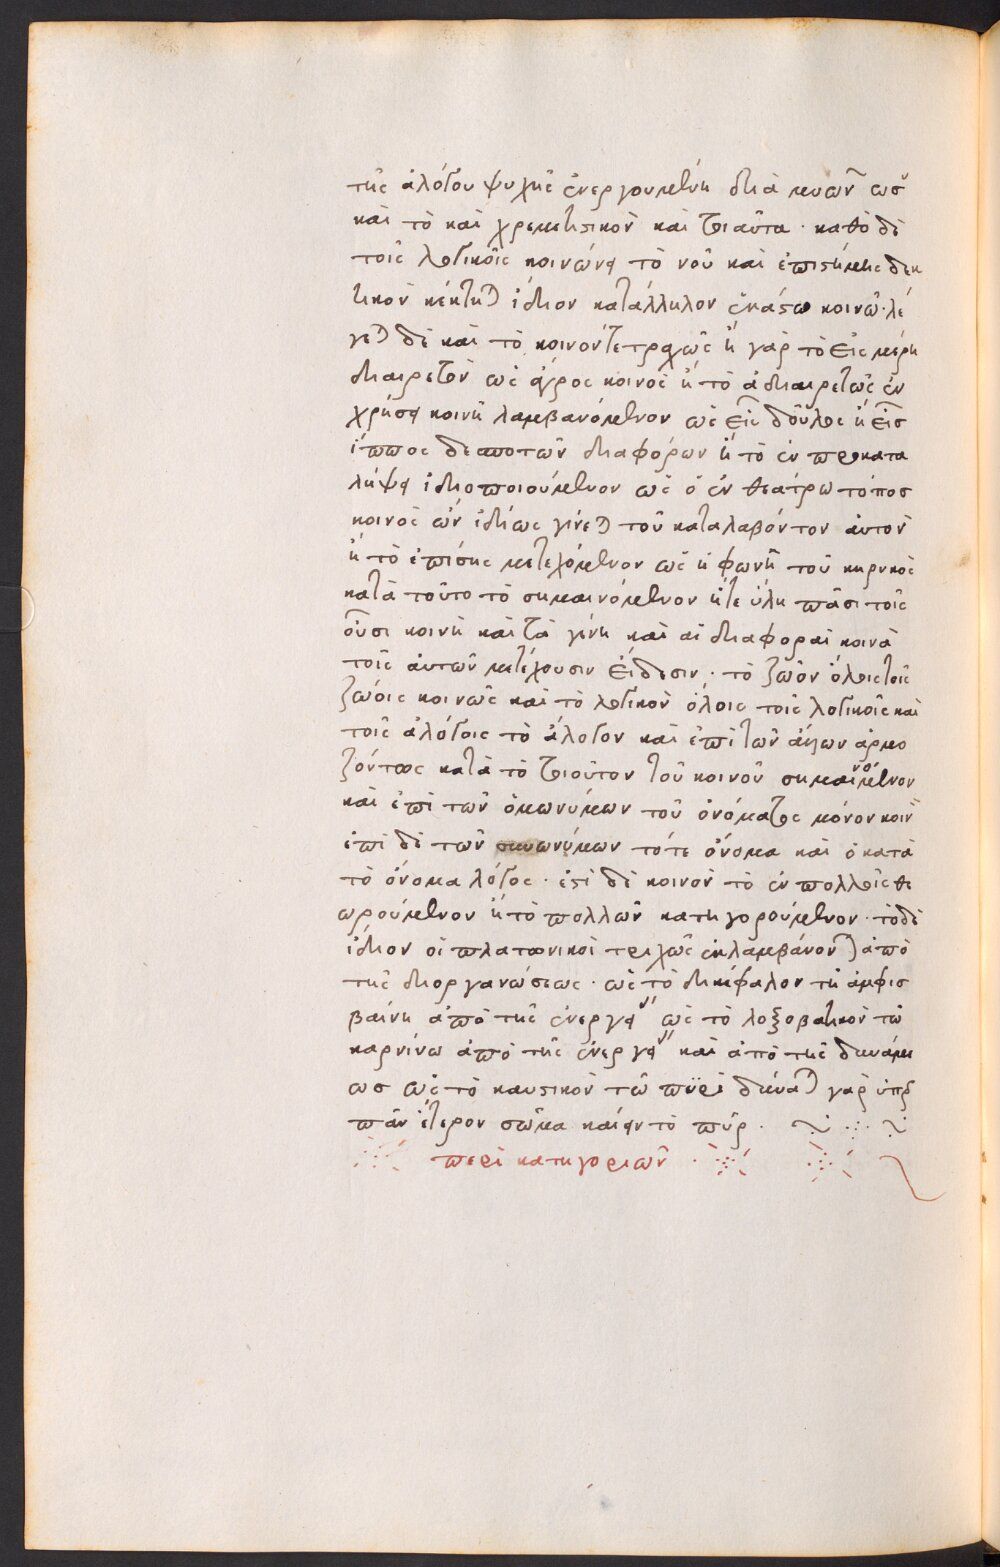 τῆς ἀλόγου ψυχῆς ἐνεργουμένη διὰ μυῶν ὡς
καὶ τὸ καὶ χρεμετιστικὸν καὶ τοιαῦτα · καθὸ δὲ
τοῖς λογικοῖς κοινωνεῖ τὸ νοῦ καὶ ἐπιστήμης δεκ
τικὸν κέκτηται ἴδιον κατάλληλον ἑκάστω κοινῶ · λέ
γεται δὲ καὶ τὸ κοινὸν τετραχῶς ἢ γὰρ τὸ εἰς μέρη
διαιρετὸν ὡς ἀγρὸς κοινὸς ἢ τὸ ἀδιαιρετῶς ἐν
χρήσει κοινῆ λαμβανόμενον ὡς εἷς δοῦλος ἢ εἷς
ἵππος δεσποτῶν διαφόρων ἢ τὸ ἐν προκατα
λήψει ἰδιοποιούμενον ὡς ὁ ἐν θεάτρω τόπος
κοινὸς ὢν ἰδίως γίνεται τοῦ καταλαβόντον αὐτὸν
ἢ τὸ ἐπίσης μετεχόμενον ὡς ἡ φωνὴ τοῦ κηρυκὸς
κατὰ τοῦτο τὸ σημαινόμενον ἥτε ὕλη πᾶσι τοῖς
οὖσι κοινὴ καὶ τὰ γένη καὶ αἱ διαφοραὶ κοινὰ
τοῖς αὐτῶν μετέχουσιν εἴδεσιν · τὸ ζῶον ὅλοις τοῖς
ζώοις κοινῶς καὶ τὸ λογικὸν ὅλοις τοῖς λογικοῖς καὶ
τοῖς ἀλόγοις τὸ ἄλογον καὶ ἐπὶ τῶν ἄλλων ἁρμο
ζόντως κατὰ τὸ τοιοῦτον τοῦ κοινοῦ σημαινόμενον
καὶ ἐπὶ τῶν ὁμωνύμων τοῦ ὀνόματος μόνον κοιν
ἐπὶ δὲ τῶν συνωνύμων τότε ὄνομα καὶ ὁ κατὰ
τὸ ὄνομα λόγος · ἔστι δὲ κοινὸν τὸ ἐν πολλοῖς θε
ωρούμενον ἢ τὸ πολλῶν κατηγορούμενον · τὸ δὲ
ἴδιον οἱ πλατωνικοὶ τριχῶς ἐκλαμβάνονται ἀπὸ
τῆς διοργανώσεως · ὡς τὸ δικέφαλον τῆ ἀμφισ
βαίνη ἀπὸ τῆς ἐνεργείας ὡς τὸ λοξοβατικὸν τῶ
καρκίνω ἀπὸ τῆς ἐνεργείας καὶ ἀπὸ τῆς δυνάμε
ως ὡς τὸ καυστικὸν τῶ πυρὶ δύναται γὰρ ὑπὲρ
πᾶν ἕτερον σῶμα καίειν τὸ πῦρ .
περὶ κατηγοριῶν ·